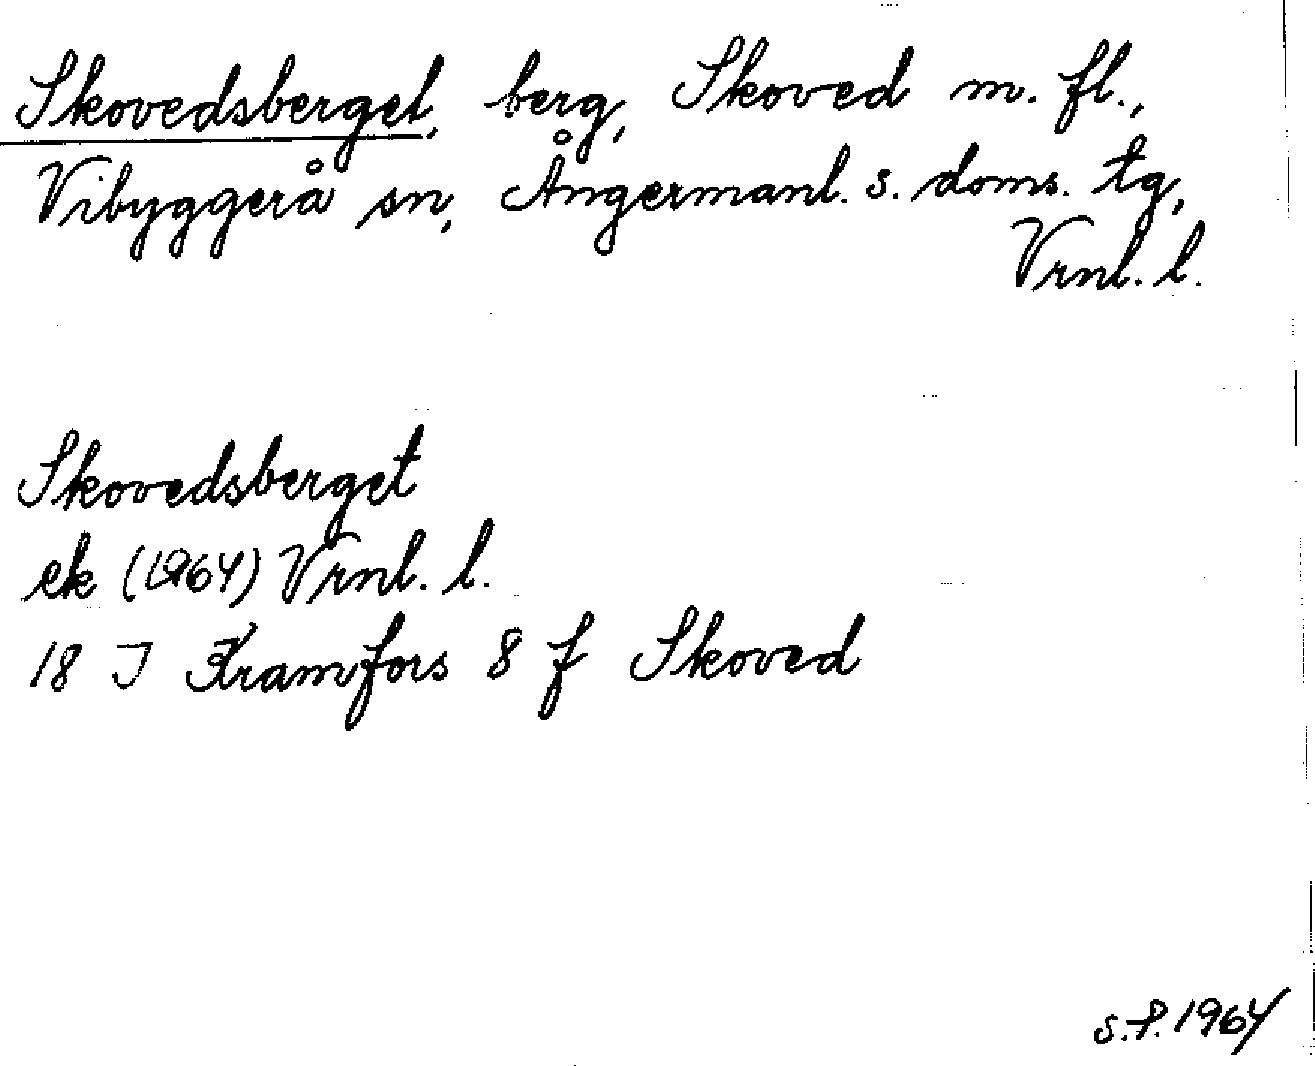 Skovedsberget, berg, Skoved m. fl.,
Vibyggerå sn, Ångermanl. s. doms. tg,
Vrnl. l.
Skovedsberget
ek (1964) Vrnl. l.
18 I Kramfors 8 f Skoved
s.f. 1964